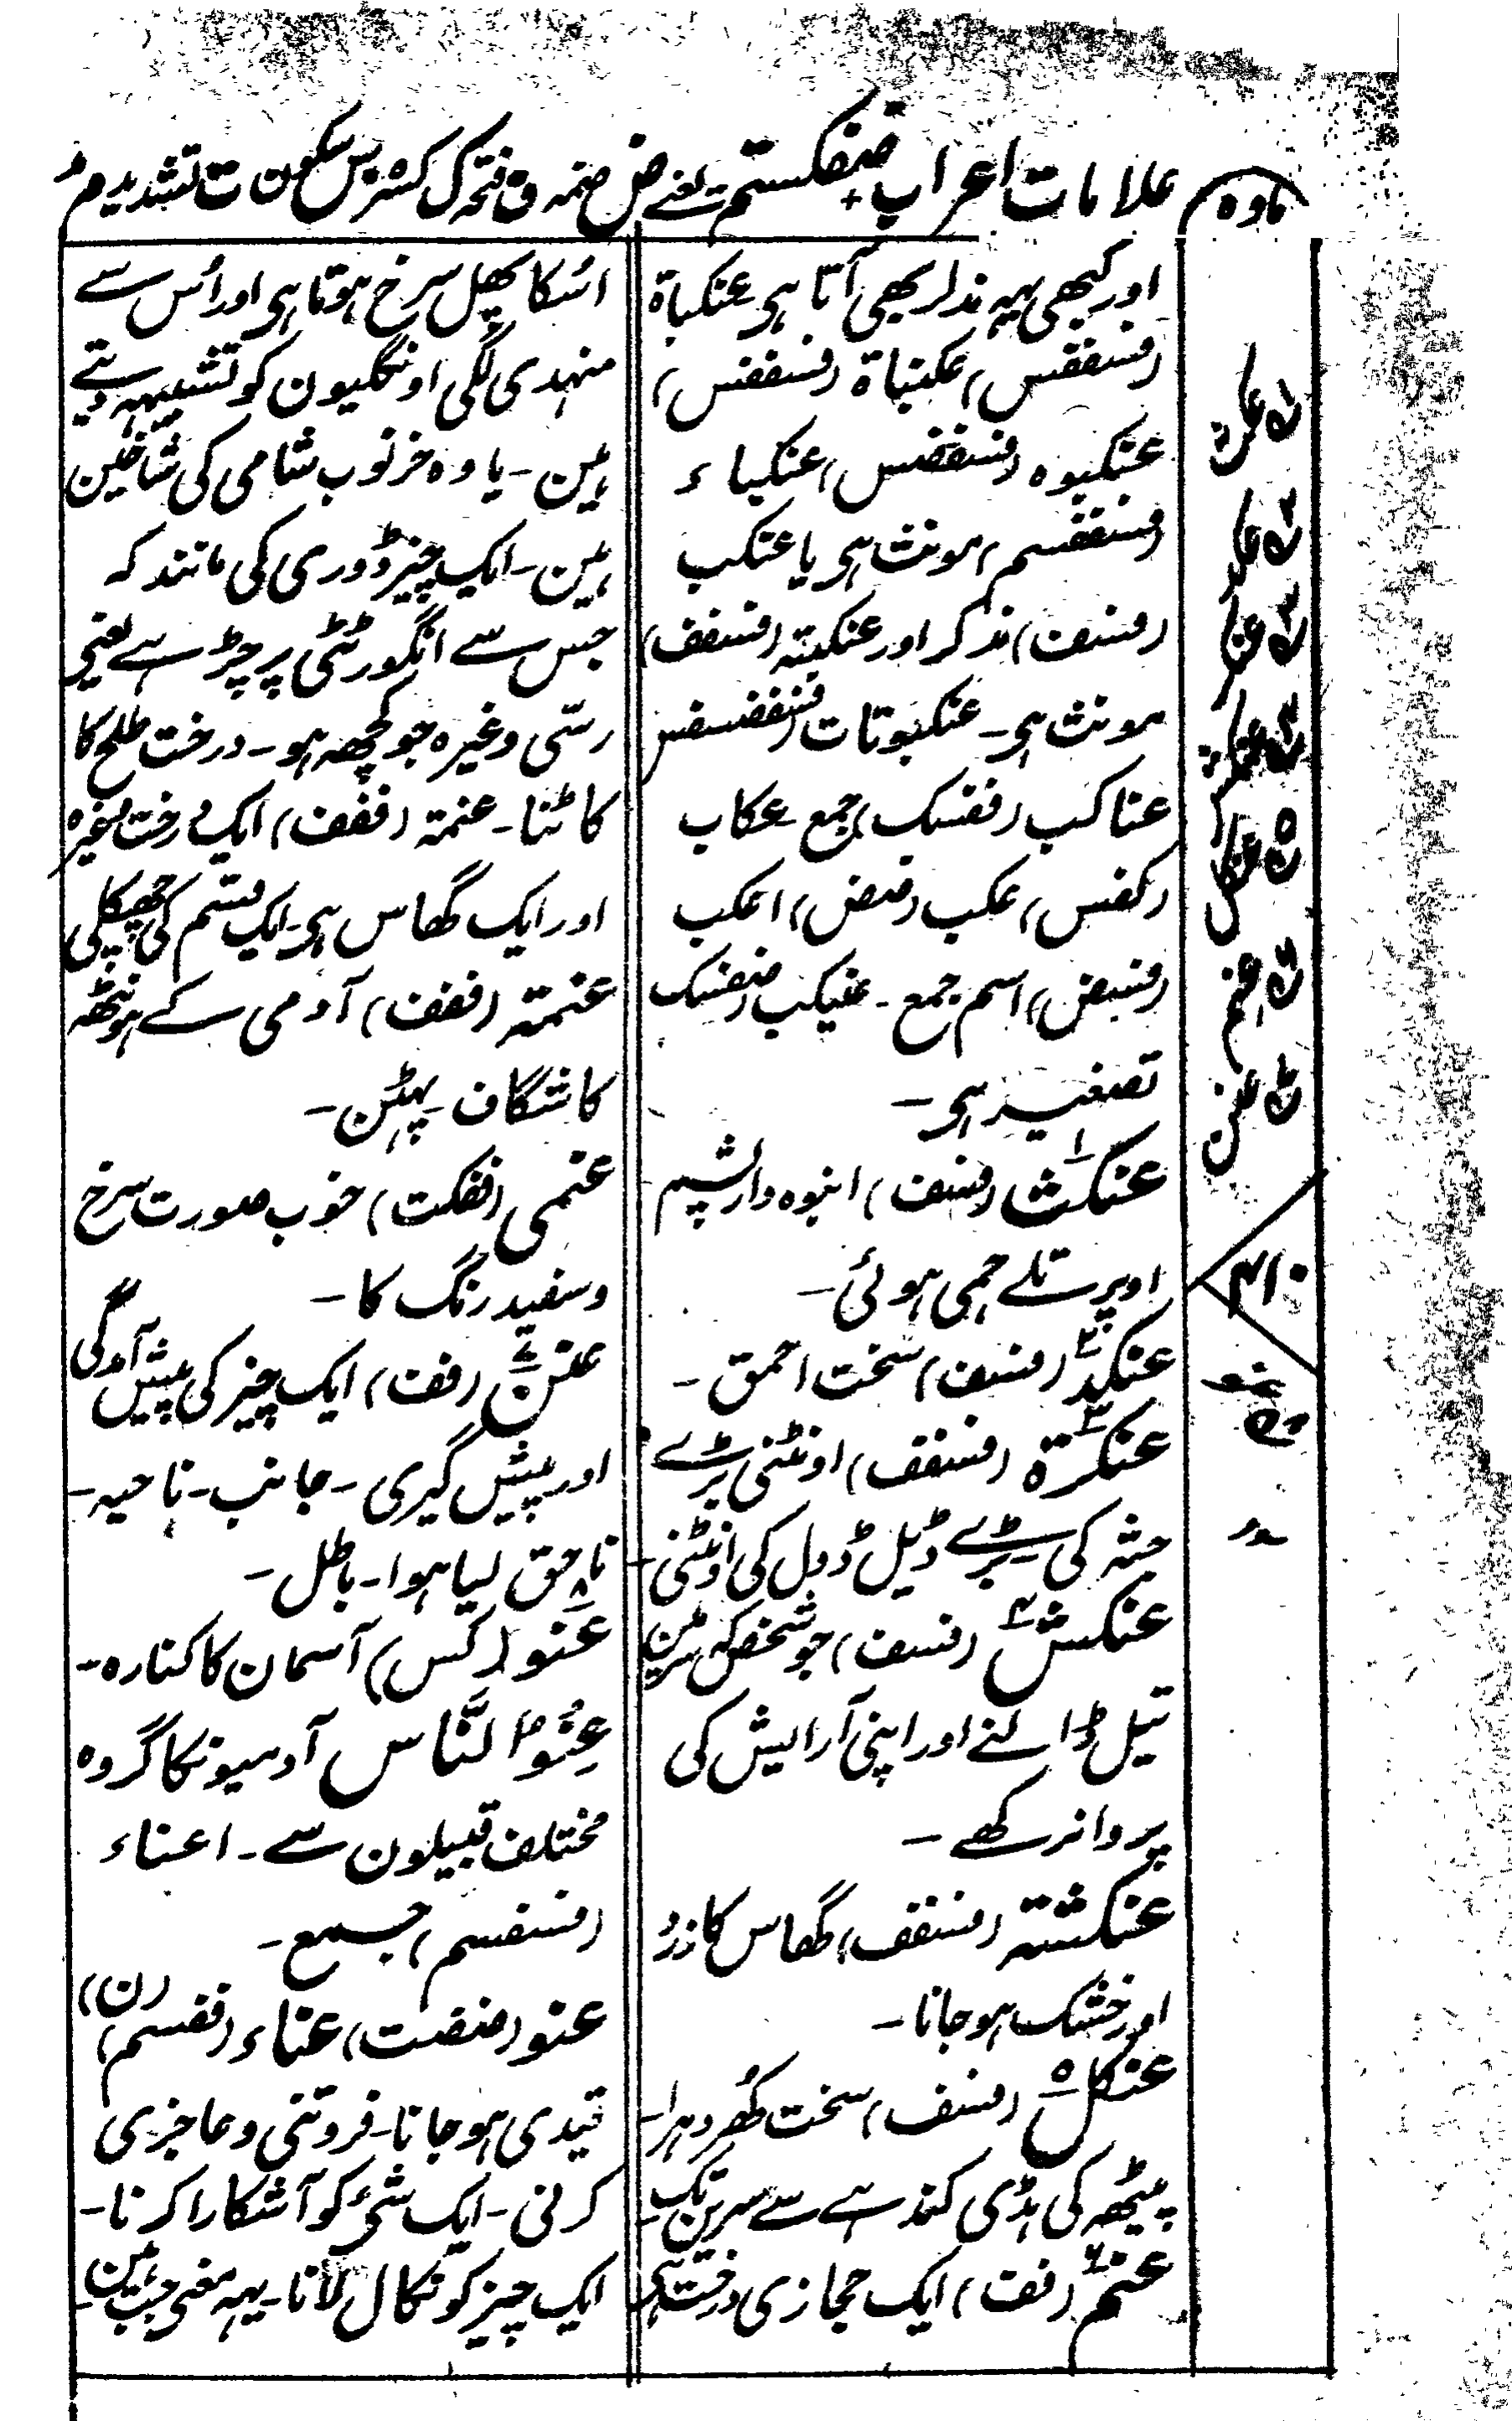 مادہ
علامات اعراب ضفکستم یعنے ض ضمہ ف فتحہ ک کسرہ س سکون ت تشدید م مد
اور کبھی یہہ مذکر بھی آتا ہی عنکباۃ
(فسففس) عکنباۃ (فسففس)
عنکبوہ (فسففس) عنکباء
(فسففسم) مونث ہی یا عنکب
(فسف) مذکر اور عنکبتہ (فسفف)
مونث ہی۔ عنکبوتات (فسفضسفس
عناکب (ففسک) جمع عکاب
(کفس) عکب (ضض) اعکب
(فسضض) اسم جمع۔ عنیکب (ضفسک
تصغیر ہی۔
عنکث (فسف) انبوہ دار پشم
اوپر تلے جمی ہوئی۔
عنکد (فسف) سخت احمق۔
عنکرۃ (فسفف) اونٹنی بڑے
جثہ کی۔ بڑے ڈیل ڈول کی اونٹنی۔
عنکش (فسف) جو شخص کہ سر مین
تیل ڈالنے اور اپنی آرایش کی
پروا نرکھے۔
عنکشتہ (فسفف) گھاس کا زرد
اور خشک ہو جانا۔
عنکل (فسف) سخت کُھردہرا۔
پیٹھہ کی ہڈی کندہے سے سرین تک۔
عنم (فف) ایک حجازی درخت ہی
اسکا پھل سرخ ہوتا ہی اور اُس سے
منہدی لگی اونگلیون کو تشبیہہ دیتے
ہین۔ یا وہ خرنوب شامی کی شاخین
ہین۔ ایک چیز ڈوری کی مانند کہ
جس سے انگور ٹٹی پر چڑہے یعنی
رسّی وغیرہ جو کچھہ ہو۔ درخت طلح کا
کاٹنا۔ عنمۃ (ففف) ایک درخت وغیرہ
اور ایک گھاس ہی۔ ایک قسم کی چھپکلی
عنمتہ (ففف) آدمی کے ہونٹھہ
کا شگاف۔ پہٹن۔
عنمی (ففکت) خوب صورت سرخ
و سفید رنگ کا۔
عنن (فف) ایک چیز کی پیش آمدگی
اور پیش گیری۔ جانب۔ ناحیہ۔
ناحق لیا ہوا۔ باطل۔
عنو (کس) آسمان کا کنارہ۔
عِنْوُ النَّاس آدمیونکا گروہ
مختلف قبیلون سے۔ اعناء
(فسفسم) جمع۔
عنو (ضضت) عناء (ففسم) (ن)
قیدی ہو جانا۔ فروتنی و عاجزی
کرنی۔ ایک شئ کو آشکارا کرنا۔
ایک چیز کو نکال لانا۔ یہہ معنی جب ہین
۴۱۰